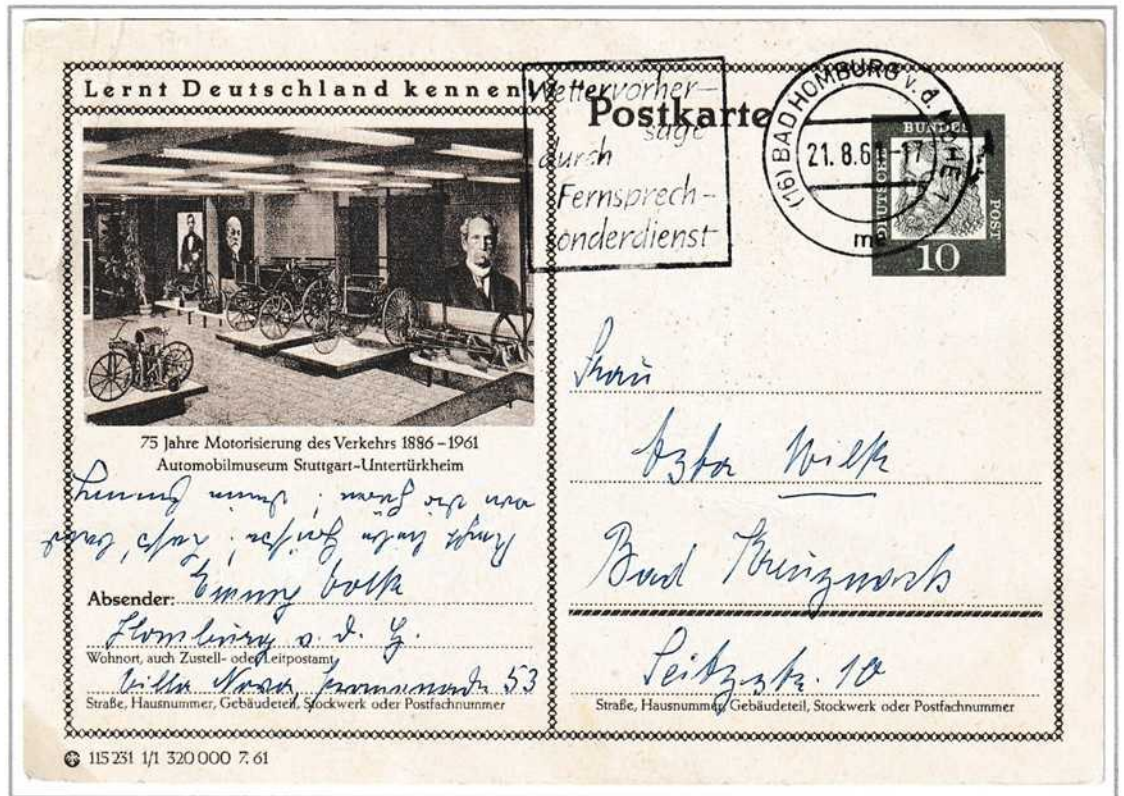 Lernt Deutschland kennen!
Wettervorher-
sage
durch
Fernsprech-
sonderdienst
Postkarte
(16) BAD HOMBURG v.d. HÖHE 1
21. 8. 61 -17
me
BUNDES
POST
DEUTSCHE
10
75 Jahre Motorisierung des Verkehrs 1886–1961
Automobilmuseum Stuttgart-Untertürkheim
Absender: Emmy Volk
Homburg v. d. H.
Wohnort, auch Zustell- oder Leitpostamt
Villa Nova, Promenade 53
Straße, Hausnummer, Gebäudeteil, Stockwerk oder Postfachnummer
Frau
Wilk
Bad Kreuznach
Seitzstr. 10
Straße, Hausnummer, Gebäudeteil, Stockwerk oder Postfachnummer
115 231 1/1 320 000 7. 61